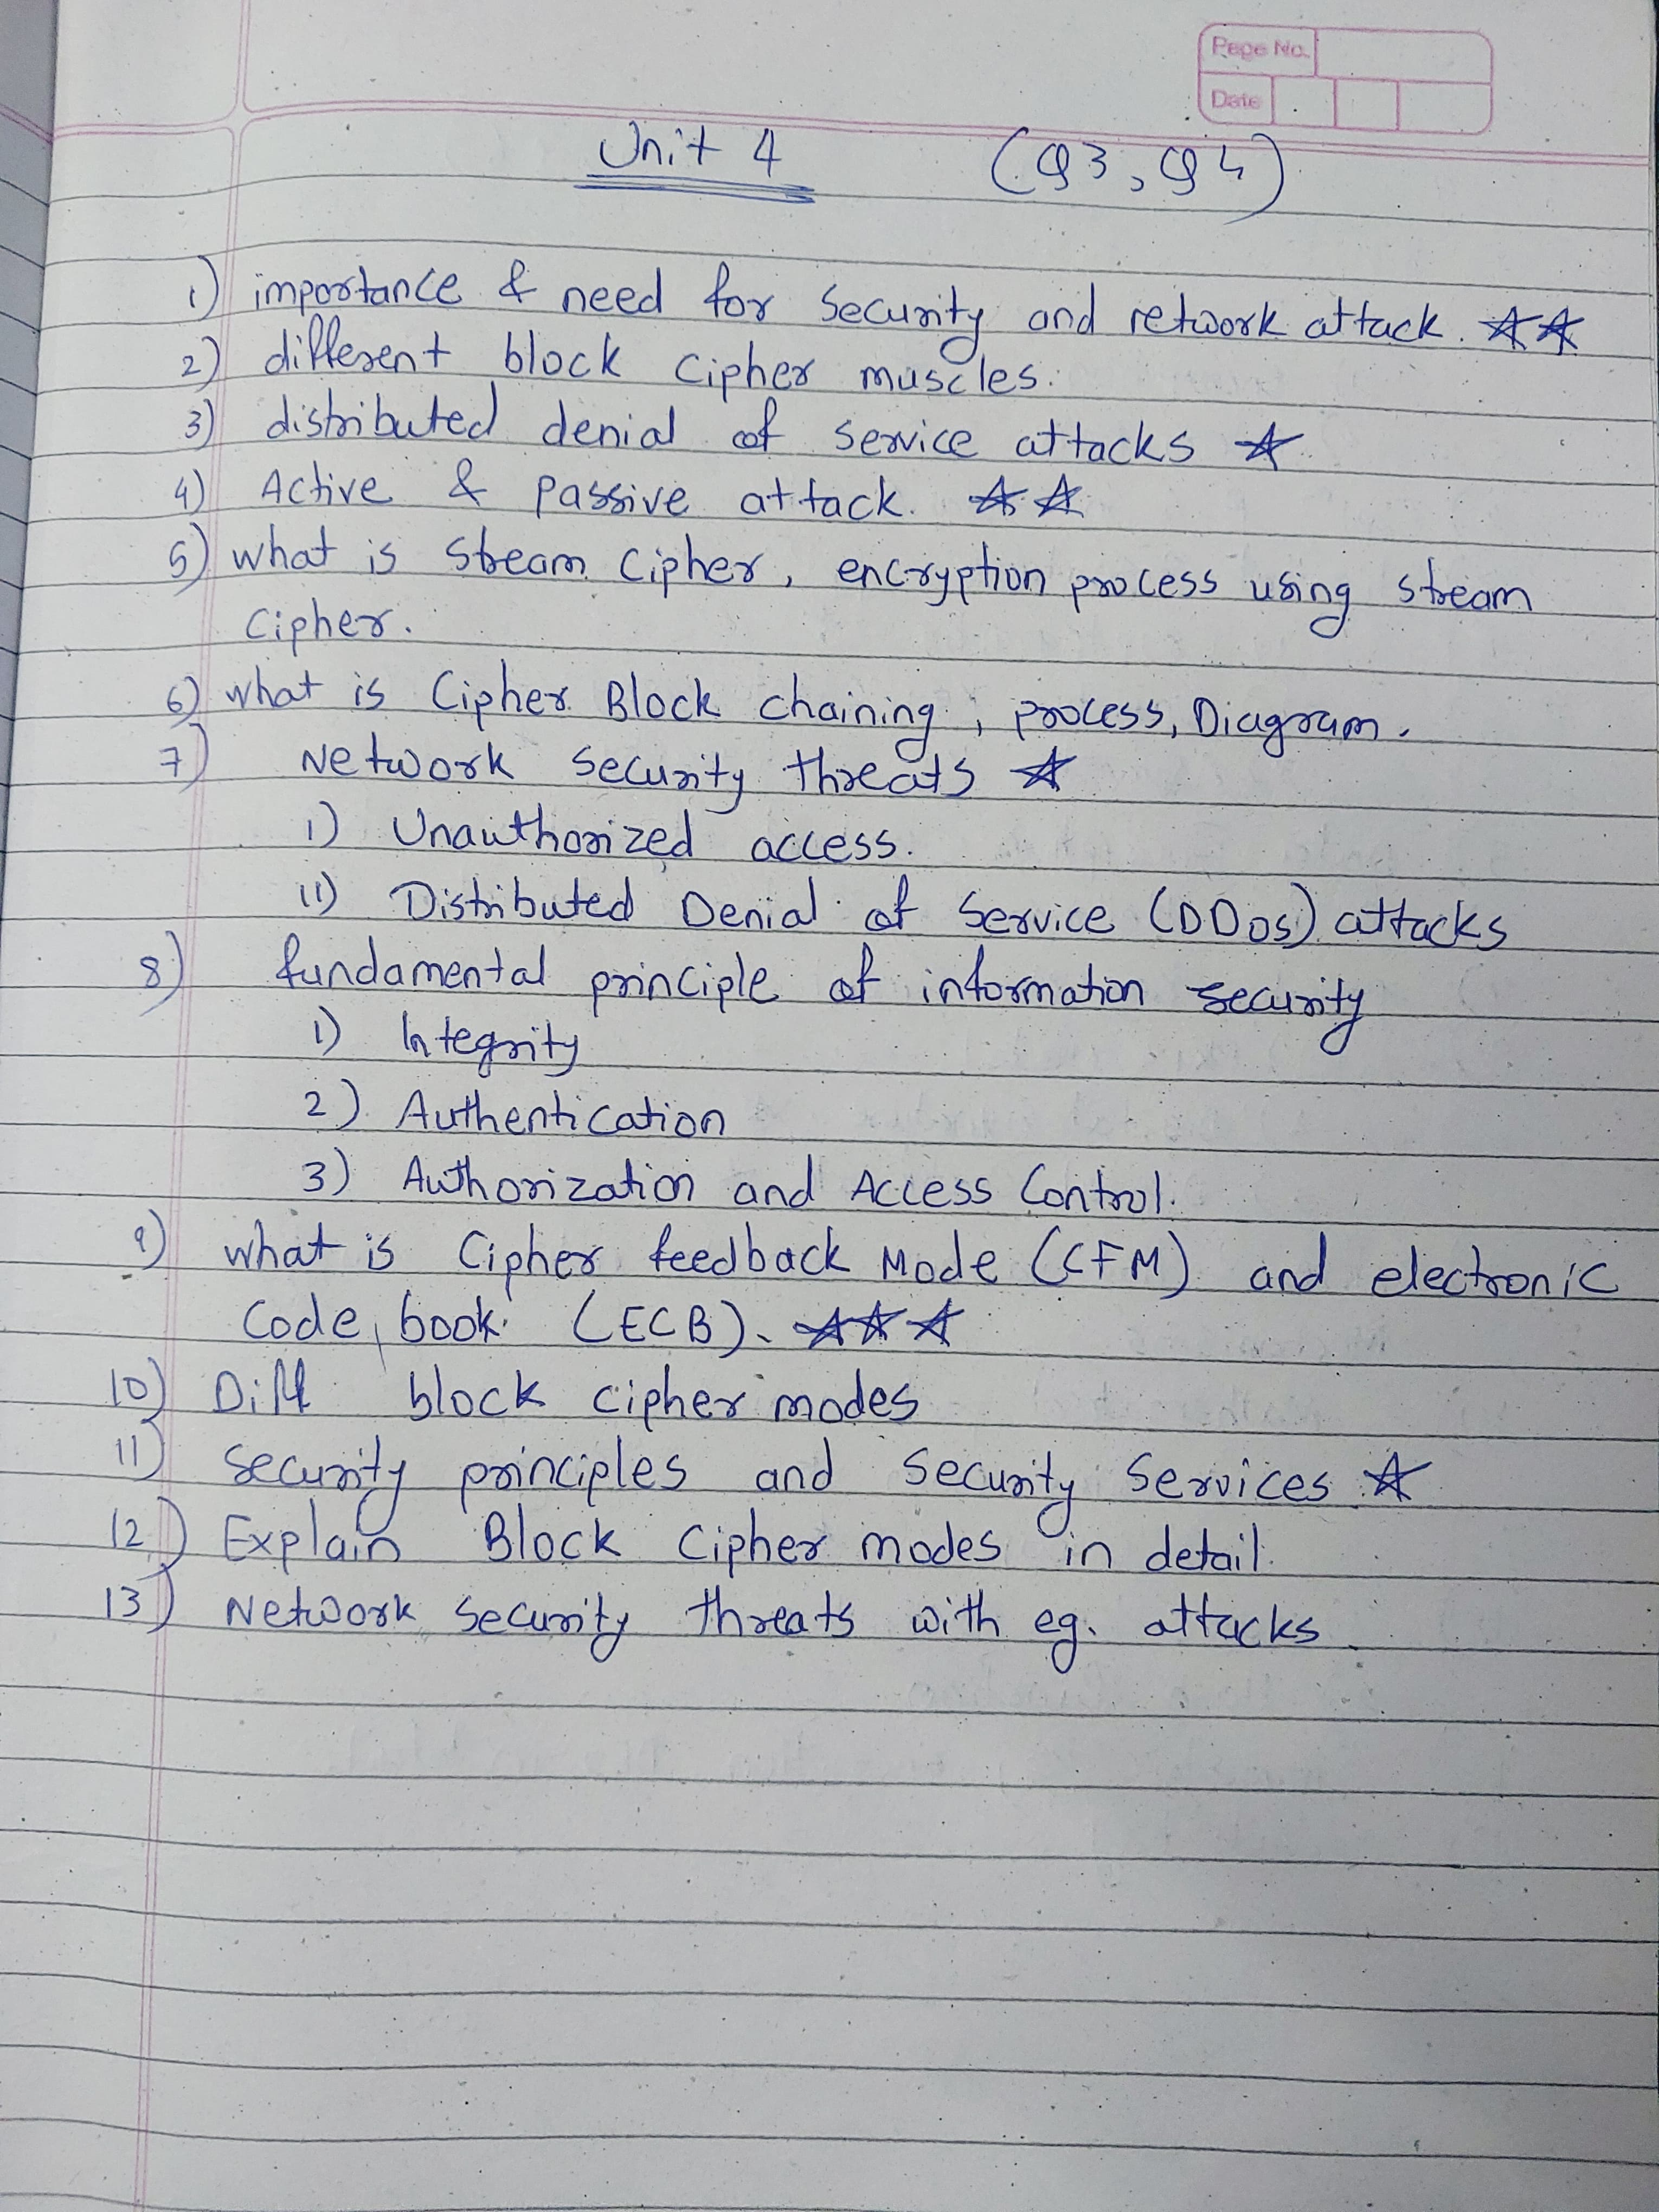 Page No.
Date
Unit 4 (Q3, Q4)
1) importance & need for security and network attack. ☆☆
2) different block cipher muscles.
3) distributed denial of service attacks ☆
4) Active & passive attack. ☆☆
5) what is stream cipher, encryption process using stream
cipher.
6) what is Cipher Block chaining, process, Diagram.
7) Network security threats ☆
i) Unauthorized access.
ii) Distributed Denial of Service (DDos) attacks
8) fundamental principle of information security
1) Integrity
2) Authentication
3) Authorization and Access Control.
9) what is Cipher feedback Mode (CFM) and electronic
Code book (ECB). ☆☆☆
10) Diff block cipher modes
11) security principles and Security Services ☆
12) Explain Block Cipher modes in detail.
13) Network security threats with eg. attacks.